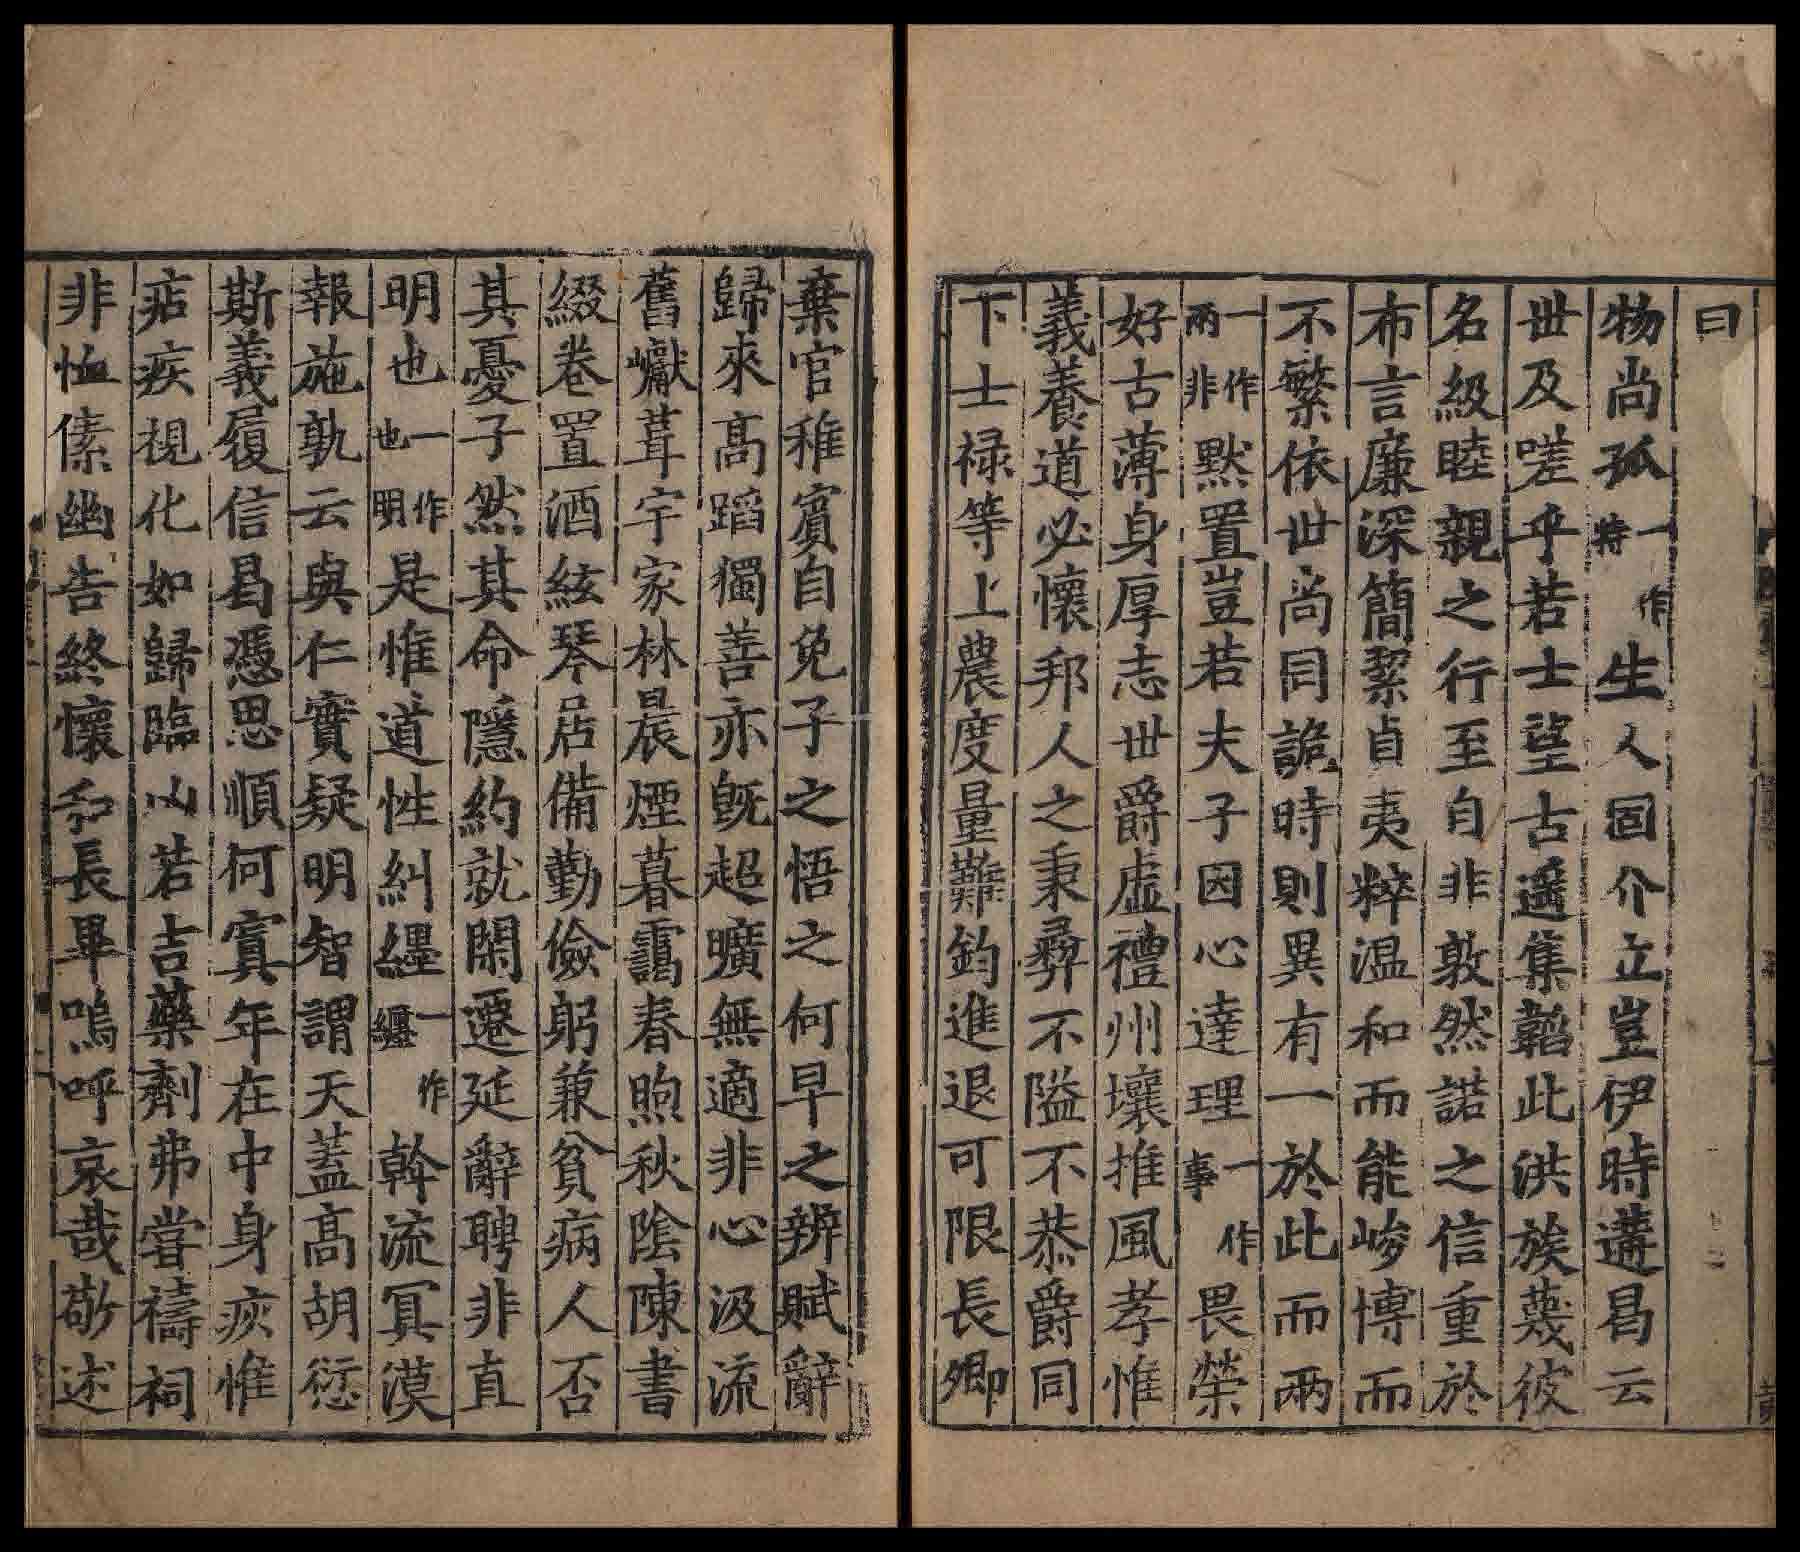 曰
物尚孤一作特生人固介立豈伊時遘曷云
世及嗟乎若士望古遥集韜此洪族蔑彼
名級睦親之行至自非敦然諾之信重於
布言廉深簡絜貞夷粹温和而能峻博而
不繁依世尚同詭時則異有一於此而兩
一作兩非默置豈若夫子因心達理一作事畏榮
好古薄身厚志世爵虛禮州壤推風孝惟
義養道必懷邦人之秉彝不隘不恭爵同
下士禄等上農度量難鈞進退可限長卿
棄官稚賓自免子之悟之何早之辨賦辭
歸來高蹈獨善亦旣超曠無適非心汲流
舊巘葺宇家林晨煙暮靄春煦秋陰陳書
綴卷置酒絃琴居備勤儉躬兼貧病人否
其憂子然其命隱約就閑遷延辭聘非直
明也一作也明是惟道性糾纆一作纏斡流冥漠
報施孰云與仁實疑明智謂天蓋高胡愆
斯義履信曷憑思順何寘年在中身疢惟
痁疾視化如歸臨凶若吉藥劑弗嘗禱祠
非恤傃幽告終懷和長畢嗚呼哀哉敬述